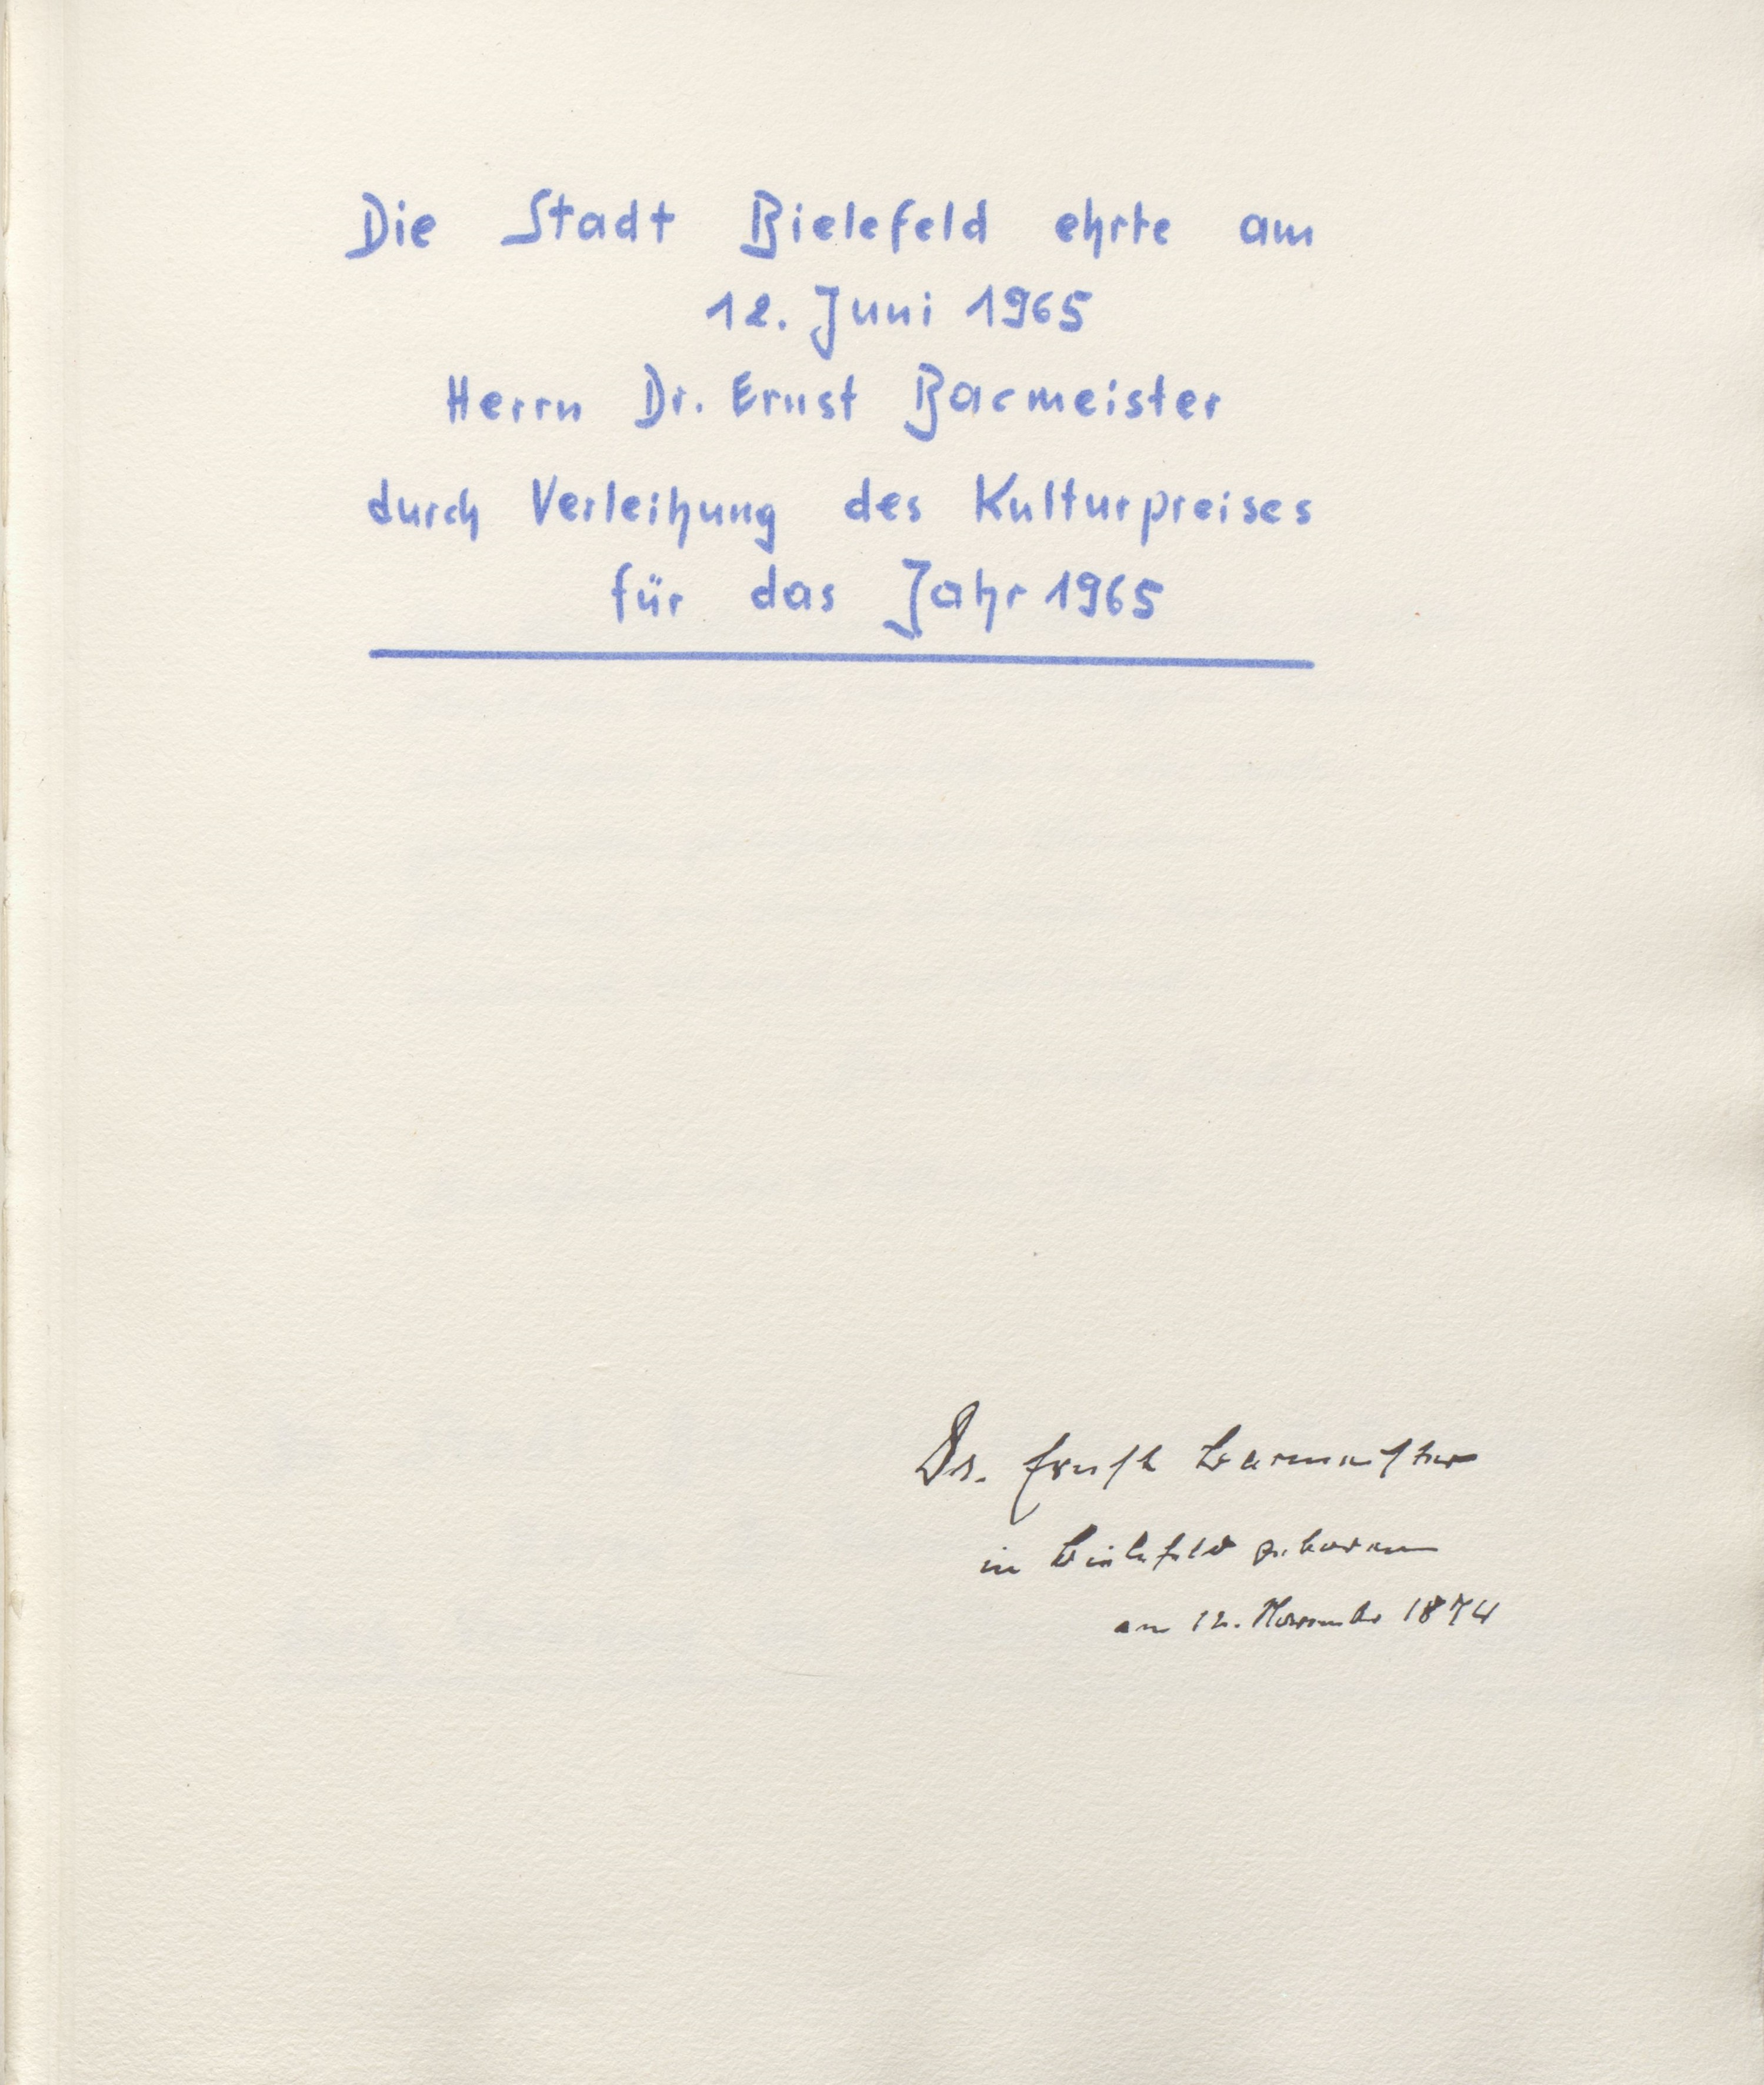 Die Stadt Bielefeld ehrte am
12. Juni 1965
Herrn Dr. Ernst Bacmeister
durch Verleihung des Kulturpreises
für das Jahr 1965
Dr. Ernst Bacmeister
in Bielefeld geboren
am 12. November 1874